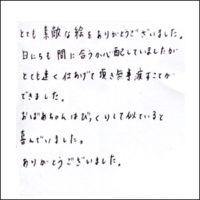 とても素敵な絵をありがとうございました。
日にちも間に合うか心配していましたが
とても速く仕あげて頂き無事渡すことが
できました。
おばあちゃんはびっくりして似ていると
喜んでいました。
ありがとうございました。